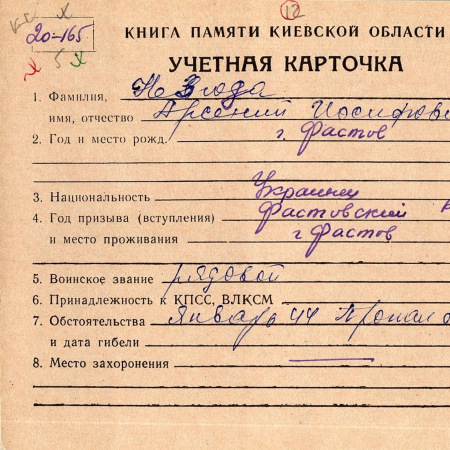 12
20-165
КНИГА ПАМЯТИ КИЕВСКОЙ ОБЛАСТИ
УЧЕТНАЯ КАРТОЧКА
1. Фамилия, Незгода
имя, отчество Арсений Иосифови
2. Год и место рожд. г. Фастов
3. Национальность Украинец
4. Год призыва (вступления) Фастовский
и место проживания г. Фастов
5. Воинское звание рядовой
6. Принадлежность к КПСС, ВЛКСМ
7. Обстоятельства январь 44 Пропал
и дата гибели
8. Место захоронения